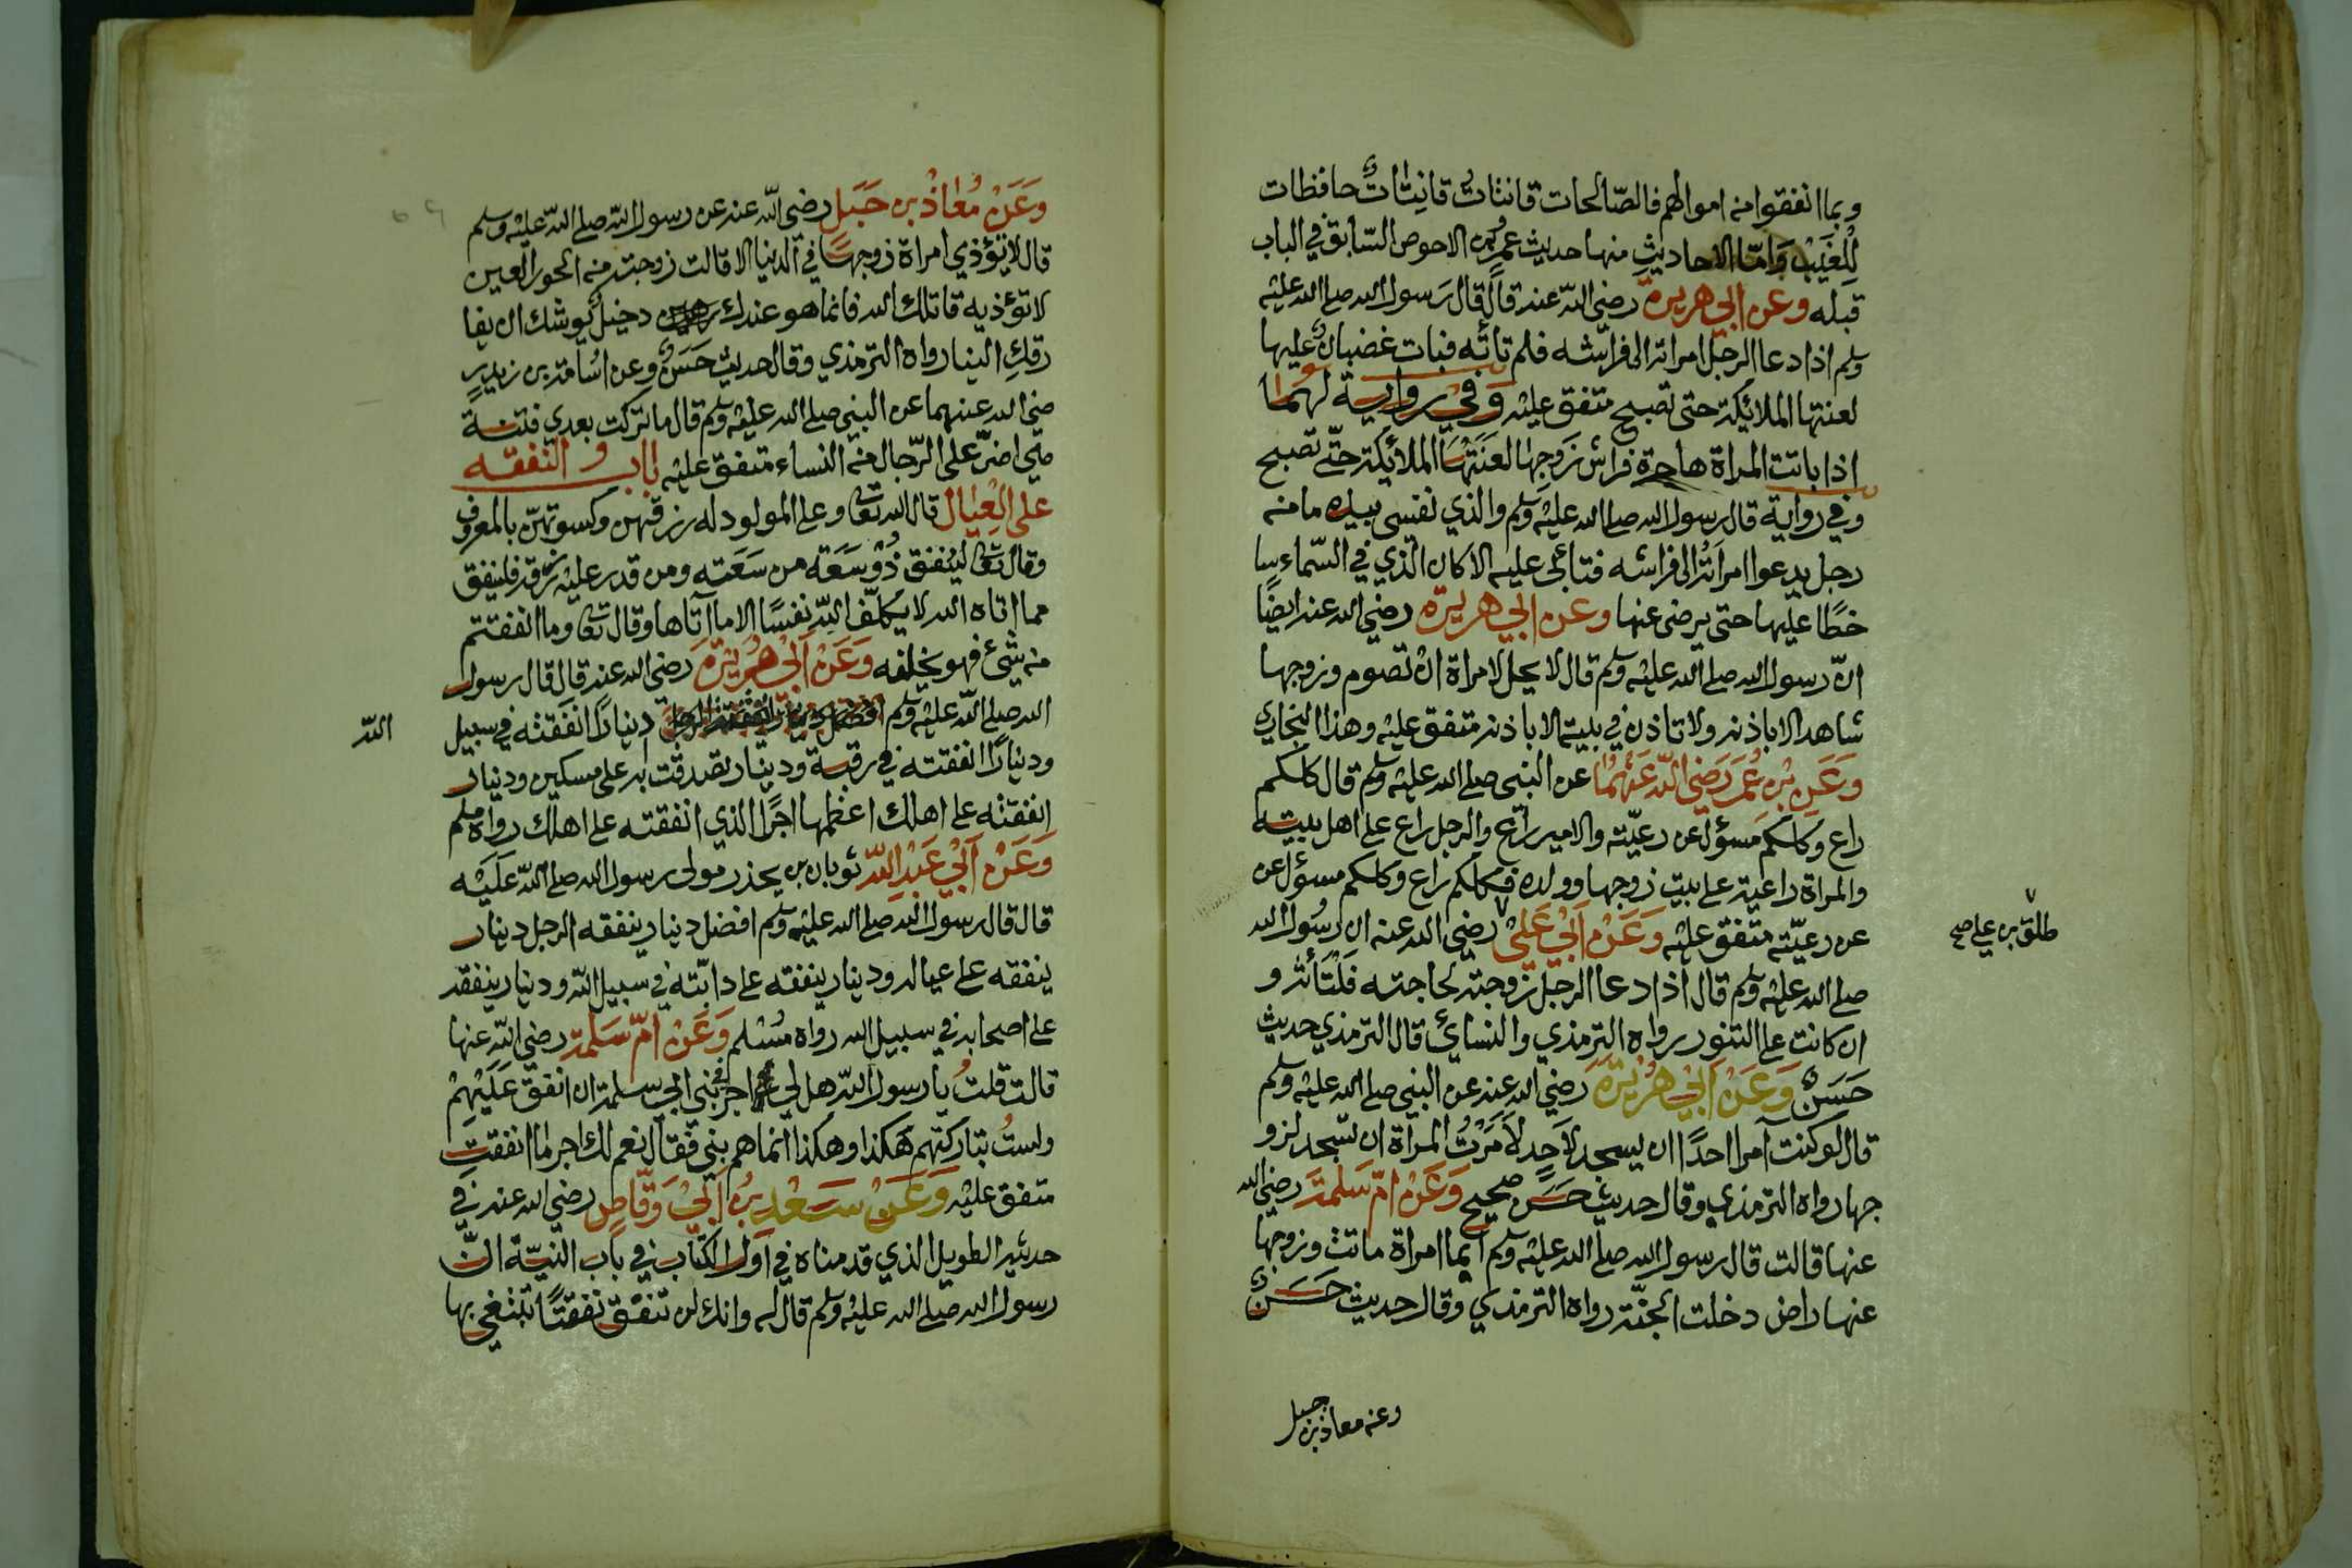 وبما انفقوا من اموالهم فالصّالحات قانتاتٌ قانِتاتٌ حافظات
لِلْغَيْبِ وَامّا الاحاديثِ منها حديث عمرو بن الاحوص السّابق في الباب
قبله وعن ابي هريرة رضي اللّه عنه قال قال رَسول الله صلى الله عليه
وسلم اذا دعا الرجل امراته الى فراشه فلم تأته فبات غضبان عليها
لعنتها الملائكة حتى تصبح متفق عليه وَفي رواية لهما
اذا باتت المراة هاجرة فراش زَوجها لعَنَتْهَا الملائكة حتّى تصبح
وفي رواية قال رسول الله صلى الله عليه وسلم والذي نفسي بيده ما من
رجل يدعوا امراتُه الى فراشه فتابى عليه الا كان الذي في السّماء سا
خطًا عليها حتى يرضى عنها وعن ابي هريرة رضي الله عنه ايضًا
انّ رسول الله صلى الله عليه وسلم قال لا يحل لامراة ان تصوم وزوجها
شاهد الا باذنه ولا تاذن في بيته الا باذنه متفق عليه وهذا البخاري
وَعَنِ بْنِ عُمَرَ رَضِيَ اللّه عَنْهُمَا عن النبي صلى الله عليه وسلم قال كلكم
راع وكلكم مسؤل عن رعيّته والامير راع والرجل راع على اهل بيته
والمراة راعية على بيت زوجها وولده فكلكم راع وكلكم مسؤل عن
عن رعيّته متفق عليه وَعَنْ اَبي عَلي رضي الله عنه ان رسُول الله
طلق بن علي صح
صلى الله عليه وسلم قال اذا دعا الرجل زوجته لحاجته فَلتَأته و
ان كانت على التنور رواه الترمذي والنسائي قال الترمذي حديث
حَسَنٌ وَعَنْ اَبي هُرَيْرَة رضي الله عنه عن النبي صلى الله عليه وسلم
قال لو كنت آمرا احدًا ان يسجد لاَحدٍ لاَمَرْتُ المراة ان تسجد لزو
جها رواه الترمذي وقال حديث حَسَن صحيح وَعَنْ امّ سَلمة رضي الله
عنها قالت قال رسول الله صلى الله عليه وسلم ايما امراة ماتت وزوجها
عنها راض دخلت الجنّة رواه الترمذي وقال حديث حَسَنٌ
وعن معاذ بن جبل
وَعَنْ مُعَاذْ بن جَبَل رضي اللّه عنه عن رسول اللّه صلى اللّه عليه وسلم
قال لا تؤذي امراة زوجها في الدنيا الا قالت زوجته من الحور العين
لا تؤذيه قاتلك الله فانما هو عندك دخيل يوشك ان يفا
رقكِ الينا رواه الترمذي وقال حديث حَسَنٌ وعن اسُامة بن زيد ر
ضي الله عنهما عن النبي صلى الله عليه وسلم قال ما تركت بعدي فتنة
هي اضرّ على الرّجال من النساء متفق عليه باب و النفقه
على الْعِيَال قال الله تعالى وعلى المولود له رزقهن وكسوتهنّ بالمعروف
وقال تعالى لينْفق ذُوْ سَعَة من سَعَته ومن قدر عليه رزقه فلينفق
مما اتاه الله لا يكلّف اللّه نفسًا الا ما اٰتاها وقال تعالى وما انفقتم
من شئ فهو يخلفه وَعَنْ اَبي هُرَيْرَة رضي الله عنه قال قال رسول
الله صلى اللّه عليه وسلم دينارًا انفقته في سبيل
اللّه
ودينارًا انفقته في رقبة ودينار تصدقت به على مسكين ودينار
انفقته على اهلك اعظمها اجرًا الذي انفقته على اهلك رواه مسلم
وَعَنْ اَبي عَبْدِ اللّه ثوبان بن بحذر مولى رسول الله صلى اللّه عَلَيْه
قال قال رسول الله صلى الله عليه وسلم افضل دينار ينفقه الرجل دينار
ينفقه على عياله ودينار ينفقه على دابّته في سبيل اللّه ودينار ينفقه
على اصحابه في سبيل الله رواه مُسْلم وَعَنْ امّ سَلمة رضي اللّه عنها
قالت قلتُ يا رسول اللّه هل لي اجر في بني ابي سلمة ان انفق عَلَيْهِمْ
ولستُ بتاركتهم هَكذا وهكذا انما هم بني فقال نعم لك اجر ما انفقتِ
متفق عليه وَعَنْ سَعْدِ بنِ اَبيْ وَقّاصٍ رضي الله عنه في
حديثه الطويل الذي قدمناه في اوّل الكتاب في باب النيّة انّ
رسول الله صلى الله عليه وسلم قال له وانك لن تنفق نفقتًا تبتغي بها